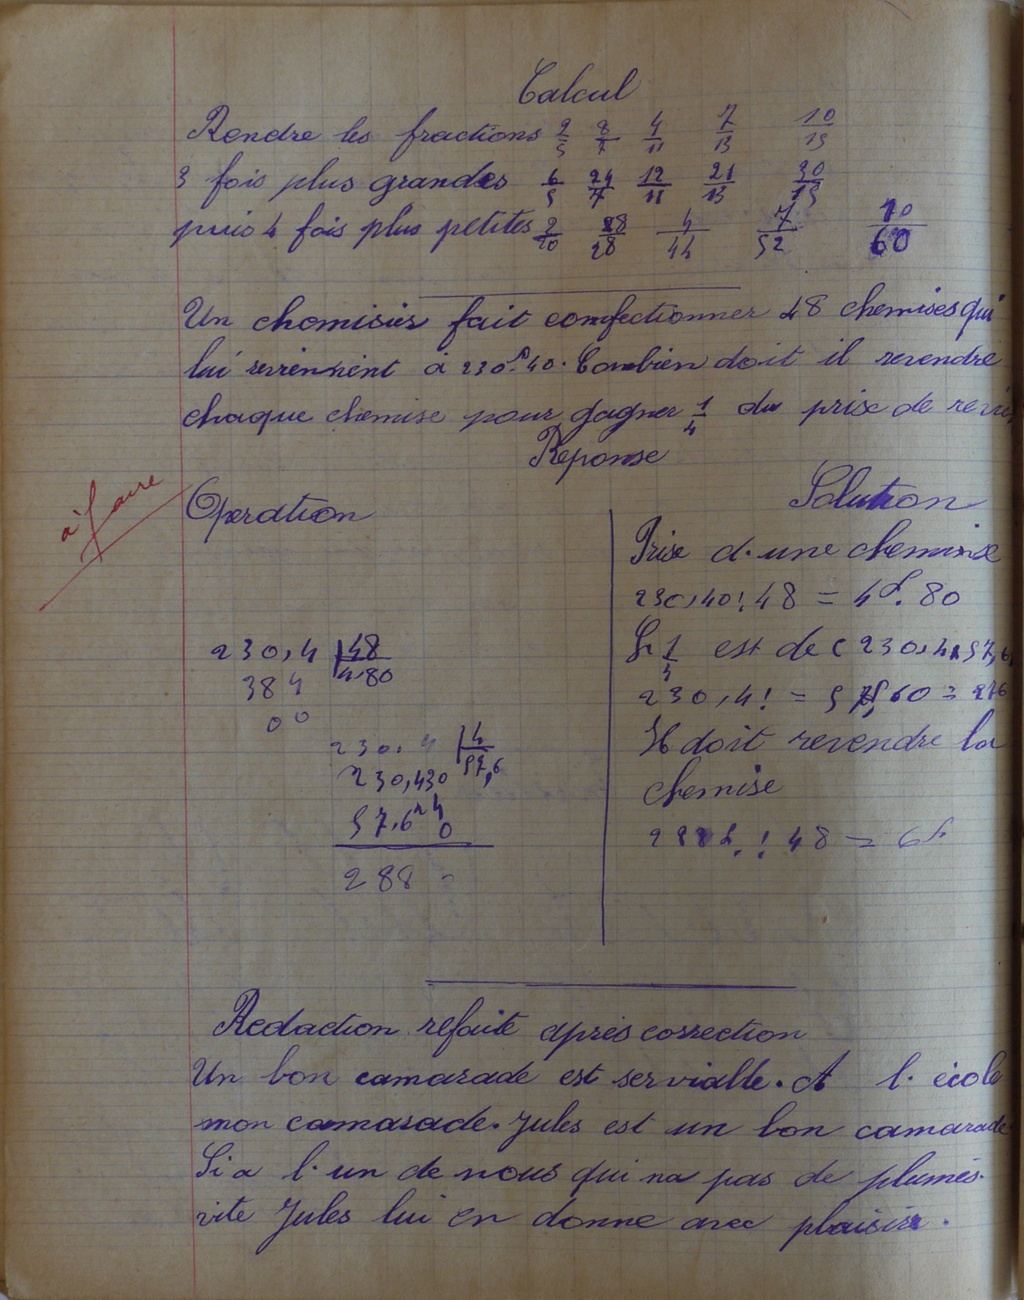 Calcul
Rendre les fractions 2/5 8/7 4/11 7/13 10/15
3 fois plus grandes 6/5 24/7 12/11 21/13 30/15
puis 4 fois plus petites 2/20 28/28 4/44 7/52 10/60
Un chemisier fait confectionner 48 chemises qui
lui reviennent à 230f.40. Combien doit il revendre
chaque chemise pour gagner 1/4 du prise de revi
Réponse
à faire
Operation
Solution
Prise d'une chemise
230,40 : 48 = 4f.80
230,4 48
384 4,80
00
Le 1/4 est de (230,4 57,6
230,4 : = 57f,60 = 
230,4 4
57,6
230,430
57,6 0
288
Il doit revendre la
chemise
288f. : 48 = 6f
Redaction refaite après correction
Un bon camarade est serviable. A l'école
mon camarade Jules est un bon camarade.
Si a l'un de nous qui na pas de plumes.
vite Jules lui en donne avec plaisir.